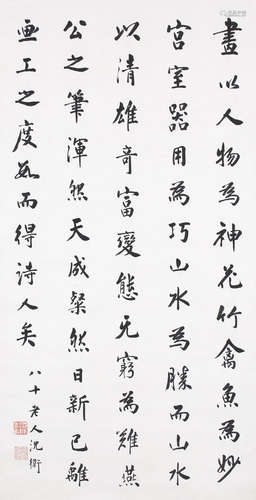 畫以人物為神花竹禽魚為妙
宮室器用為巧山水為勝而山水
以清雄奇富變態无窮為難燕
公之筆渾然天成粲然日新已離
画工之度數而得詩人矣
八十老人沈衛